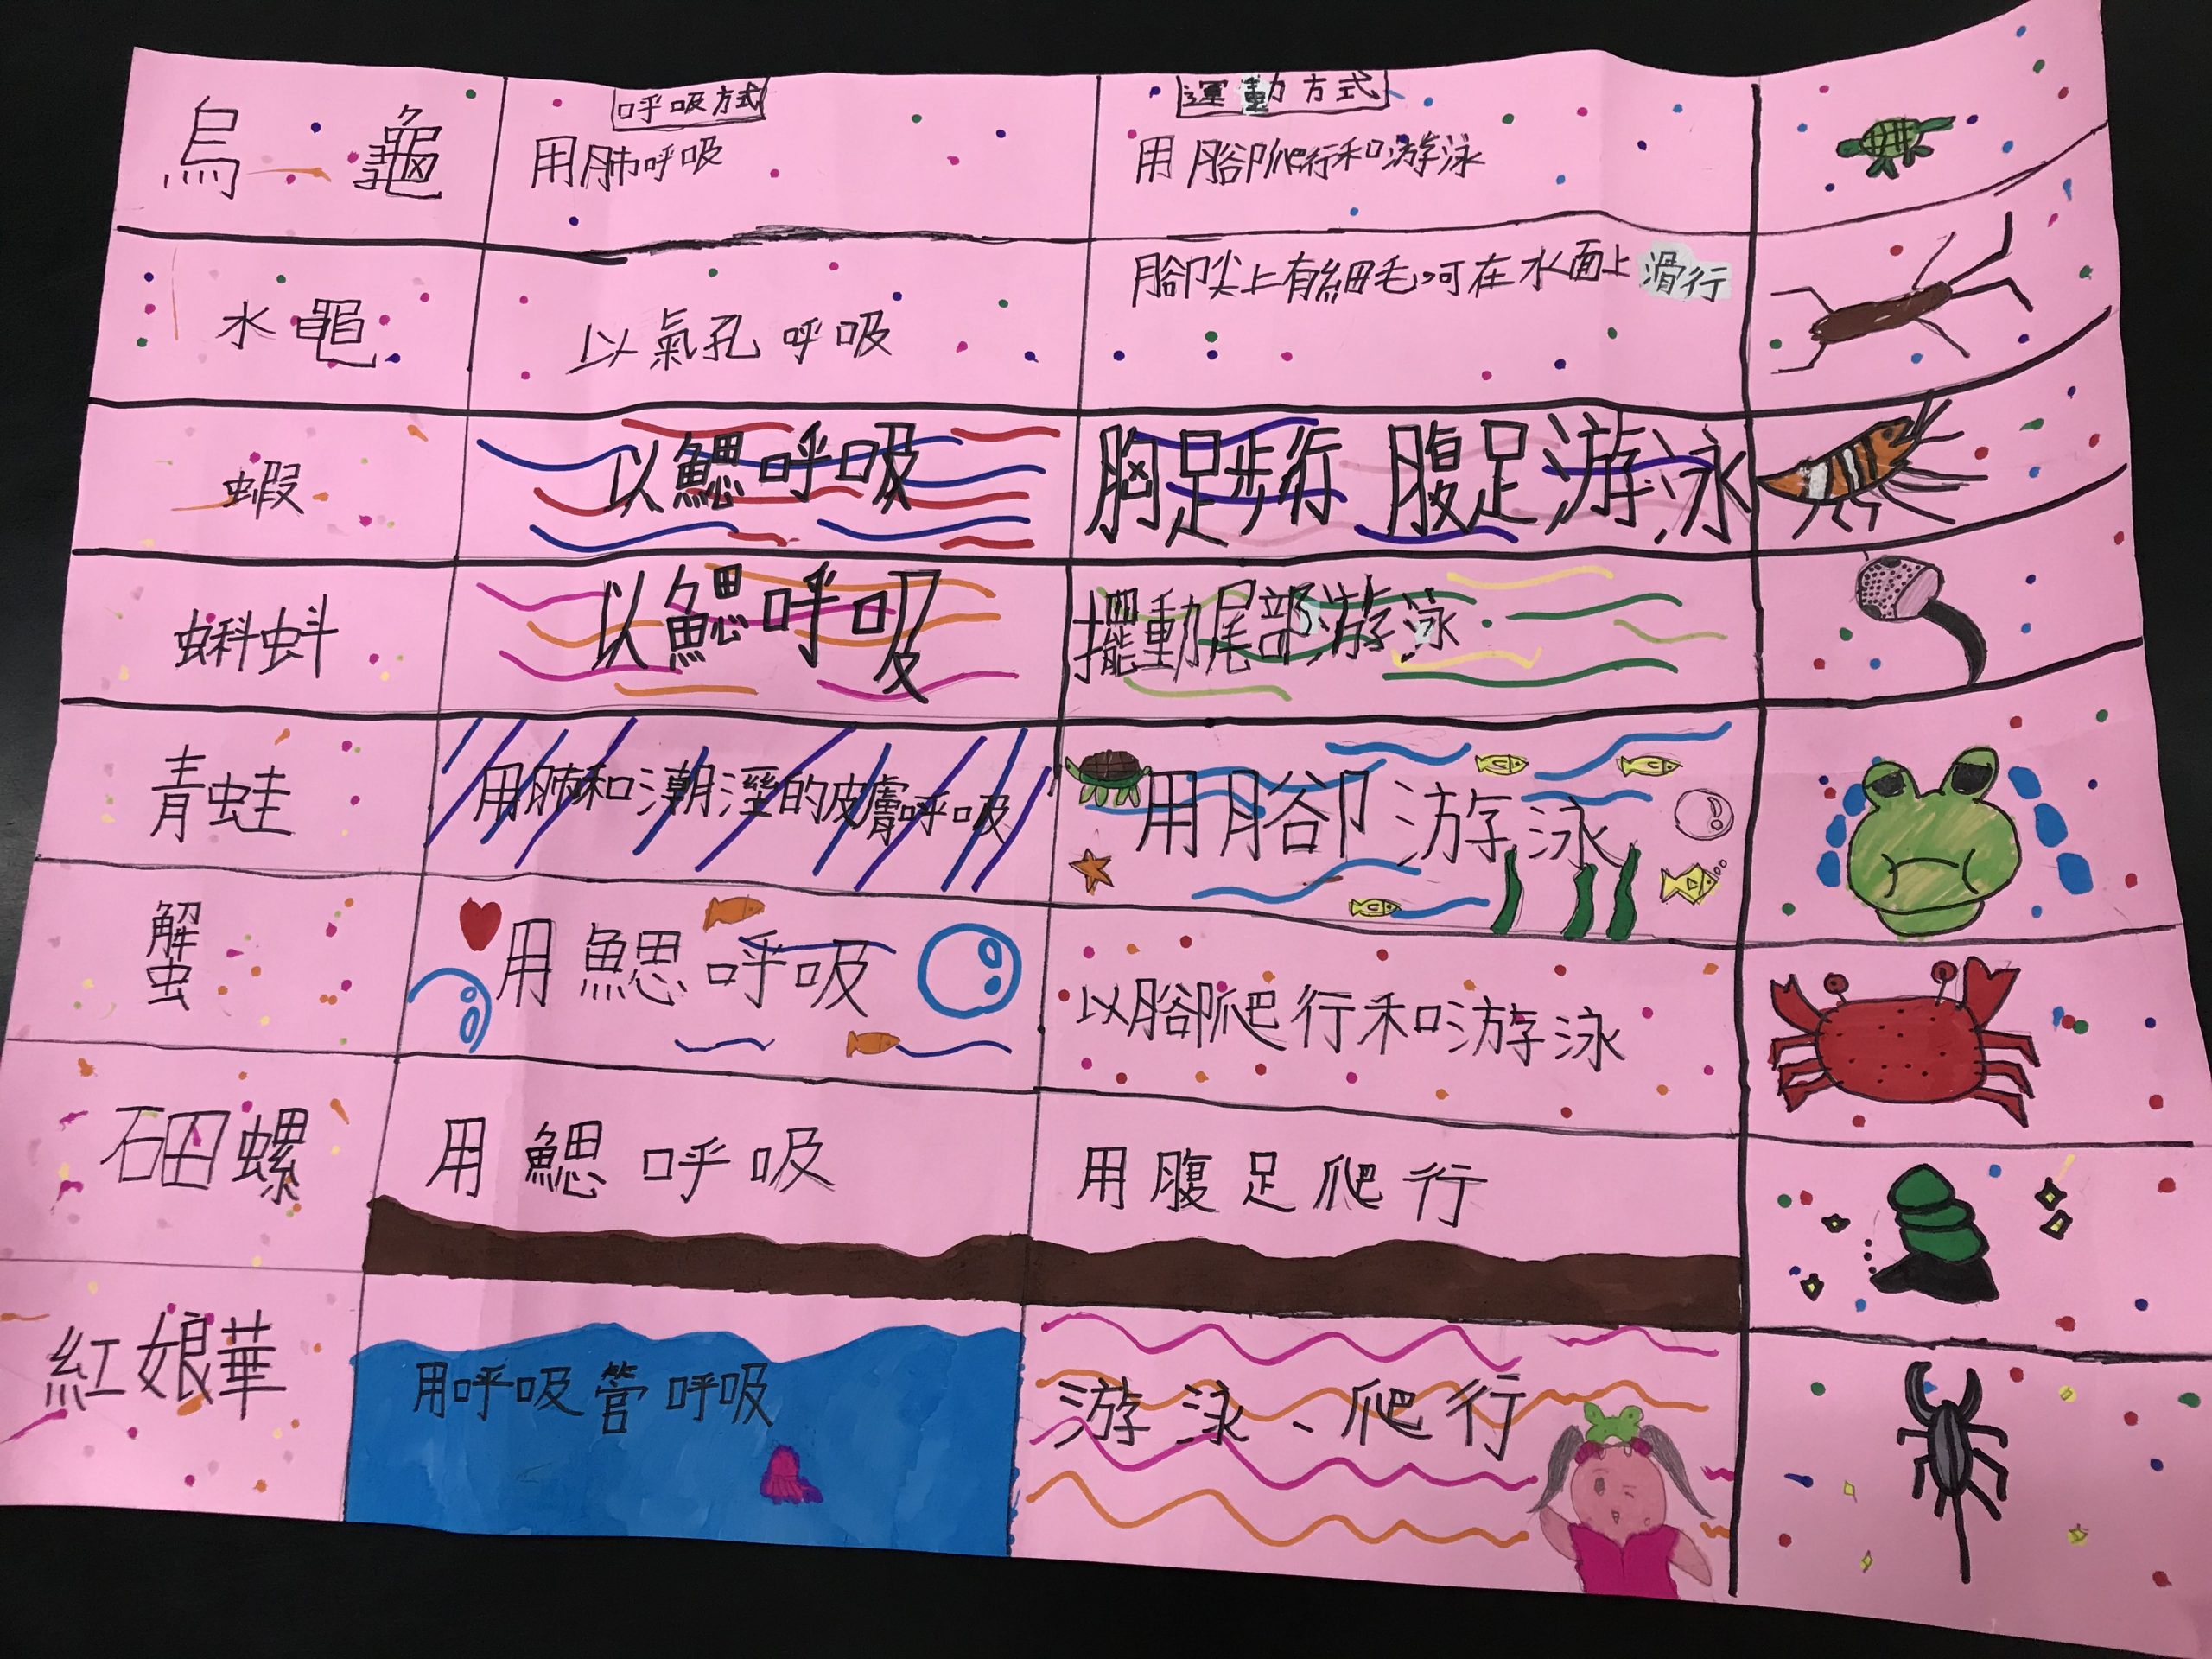 呼吸方式
運動方式
烏龜
用肺呼吸
用腳爬行和游泳
水黽
以氣孔呼吸
腳尖上有細毛可在水面上滑行
蝦
以鰓呼吸
胸足步行 腹足游泳
蝌蚪
以鰓呼吸
擺動尾部游泳
青蛙
用肺和潮溼的皮膚呼吸
用腳游泳
蟹
用鰓呼吸
以腳爬行和游泳
石田螺
用鰓呼吸
用腹足爬行
紅娘華
用呼吸管呼吸
游泳、爬行